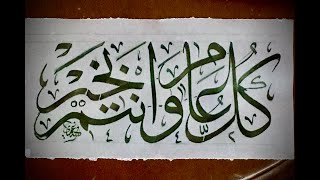 كل عام وانتم بخير